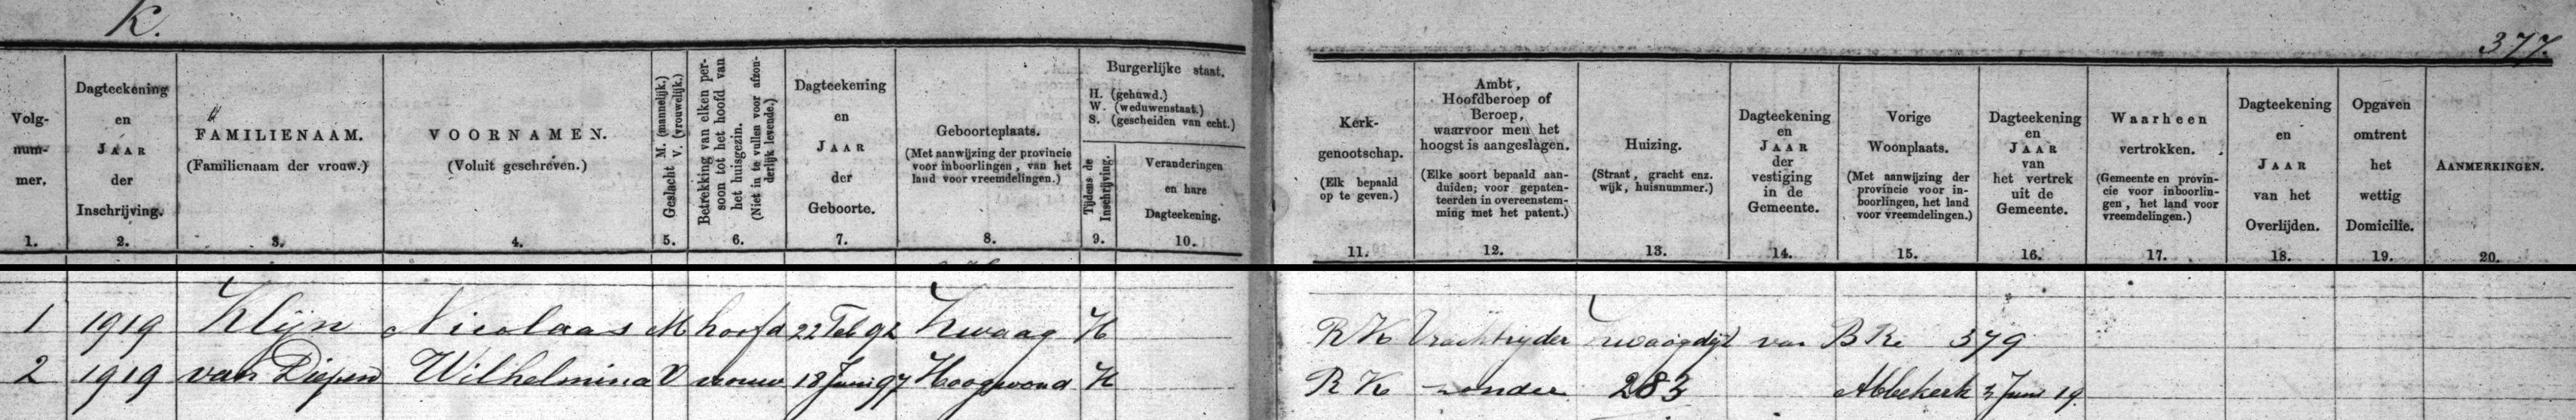 K.
377.
Volgnummer.
1.
Dagteekening
en
JAAR
der
Inschrijving.
2.
FAMILIENAAM.
(Familienaam der vrouw.)
3.
VOORNAMEN.
(Voluit geschreven.)
4.
Geslacht. M. (mannelijk.)
V. (vrouwelijk.)
5.
Betrekking van elken per-
soon tot het hoofd van
het huisgezin.
(Niet in te vullen voor afzon-
derlijk levende.)
6.
Dagteekening
en
JAAR
der
Geboorte.
7.
Geboorteplaats.
(Met aanwijzing der provincie
voor inboorlingen, van het
land voor vreemdelingen.)
8.
Burgerlijke staat.
H. (gehuwd.)
W. (weduwenstaat.)
S. (gescheiden van echt.)
Tijdens de
Inschrijving.
9.
Veranderingen
en hare
Dagteekening.
10.
Kerk-
genootschap.
(Elk bepaald
op te geven.)
11.
Ambt,
Hoofdberoep of
Beroep,
waarvoor men het
hoogst is aangeslagen.
(Elke soort bepaald aan-
duiden; voor gepaten-
teerden in overeenstem-
ming met het patent.)
12.
Huizing.
(Straat, gracht enz.
wijk, huisnummer.)
13.
Dagteekening
en
JAAR
der
vestiging
in de
Gemeente.
14.
Vorige
Woonplaats.
(Met aanwijzing der
provincie voor in-
boorlingen, het land
voor vreemdelingen.)
15.
Dagteekening
en
JAAR
van
het vertrek
uit de
Gemeente.
16.
Waarheen
vertrokken.
(Gemeente en provin-
cie voor inboorlin-
gen, het land voor
vreemdelingen.)
17.
Dagteekening
en
JAAR
van het
Overlijden.
18.
Opgaven
omtrent
het
wettig
Domicilie.
19.
AANMERKINGEN.
20.
1 1919 Klijn Nicolaas M hoofd 22 Feb 92 Zwaag H R K Vrachtrijder Zwaagdijk van B Re 379
2 1919 van Diepen Wilhelmina V vrouw 18 Juni 97 Hoogwoud H R K zonder 283 Abbekerk 3 Juni 19.